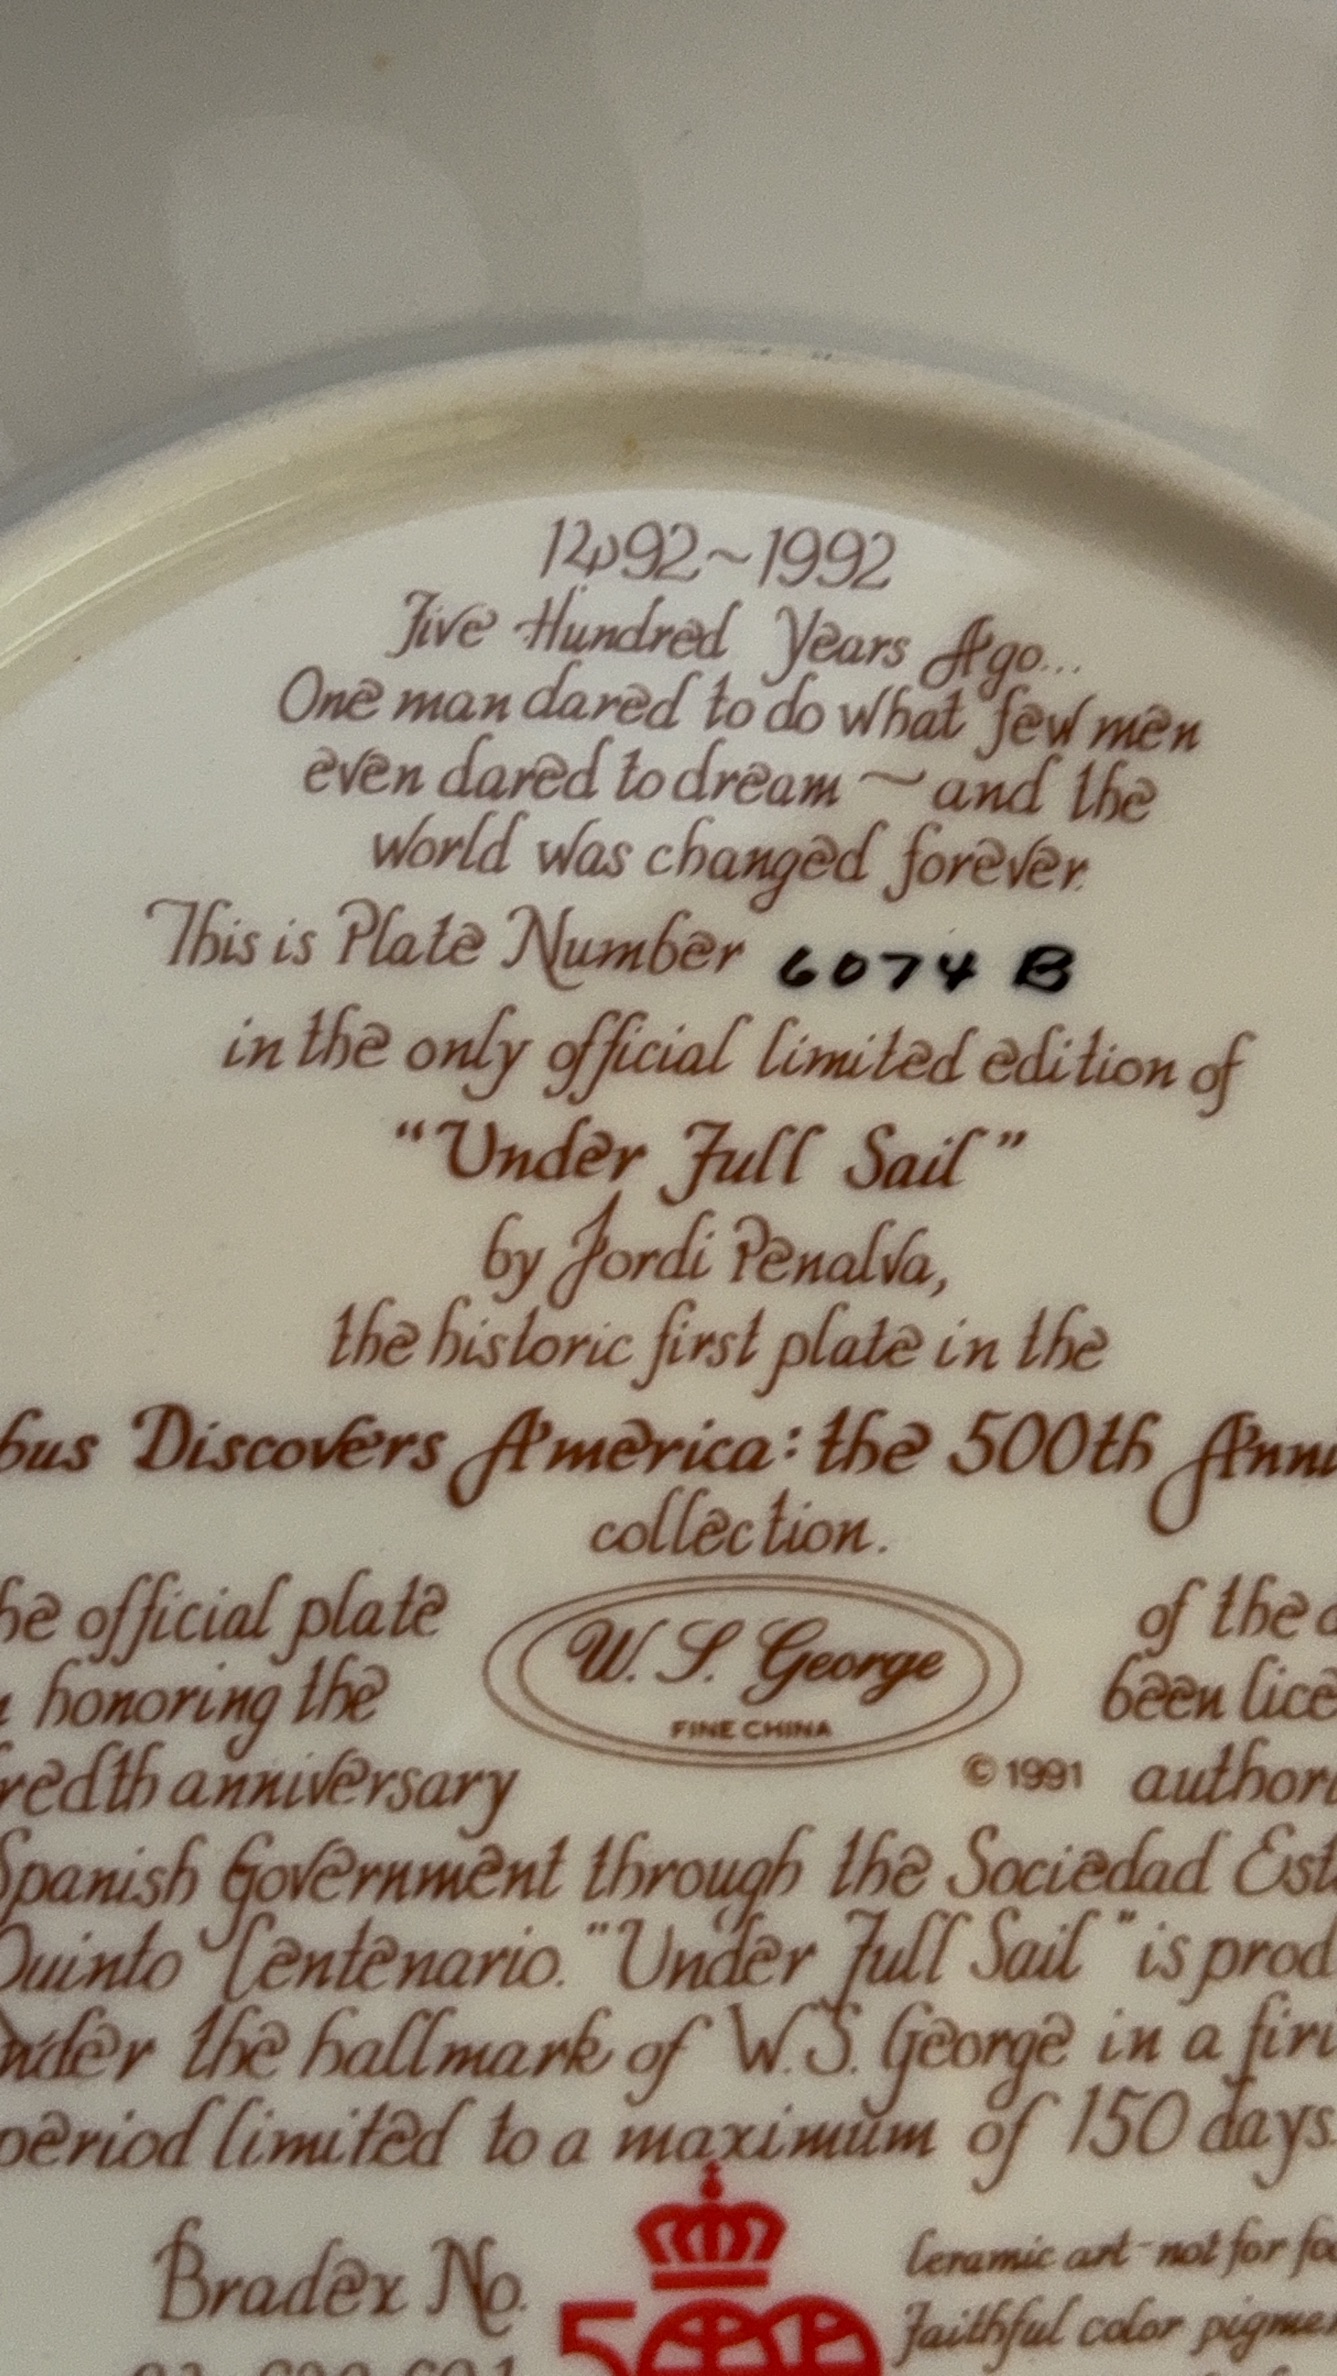 1492~1992
Five Hundred Years Ago...
One man dared to do what few men
even dared to dream ~ and the
world was changed forever.
This is Plate Number 6074 B
in the only official limited edition of
“Under Full Sail”
by Jordi Penalva,
the historic first plate in the
bus Discovers America: the 500th Ann
collection.
he official plate W. S. George of the
honoring the FINE CHINA been lice
redth anniversary © 1991 author
Spanish Government through the Sociedad Est
Quinto Centenario. “Under Full Sail” is prod
nder the hallmark of W.S. George in a firi
period limited to a maximum of 150 days.
Bradex No.
500
Ceramic art-not for fo
Faithful color pigme